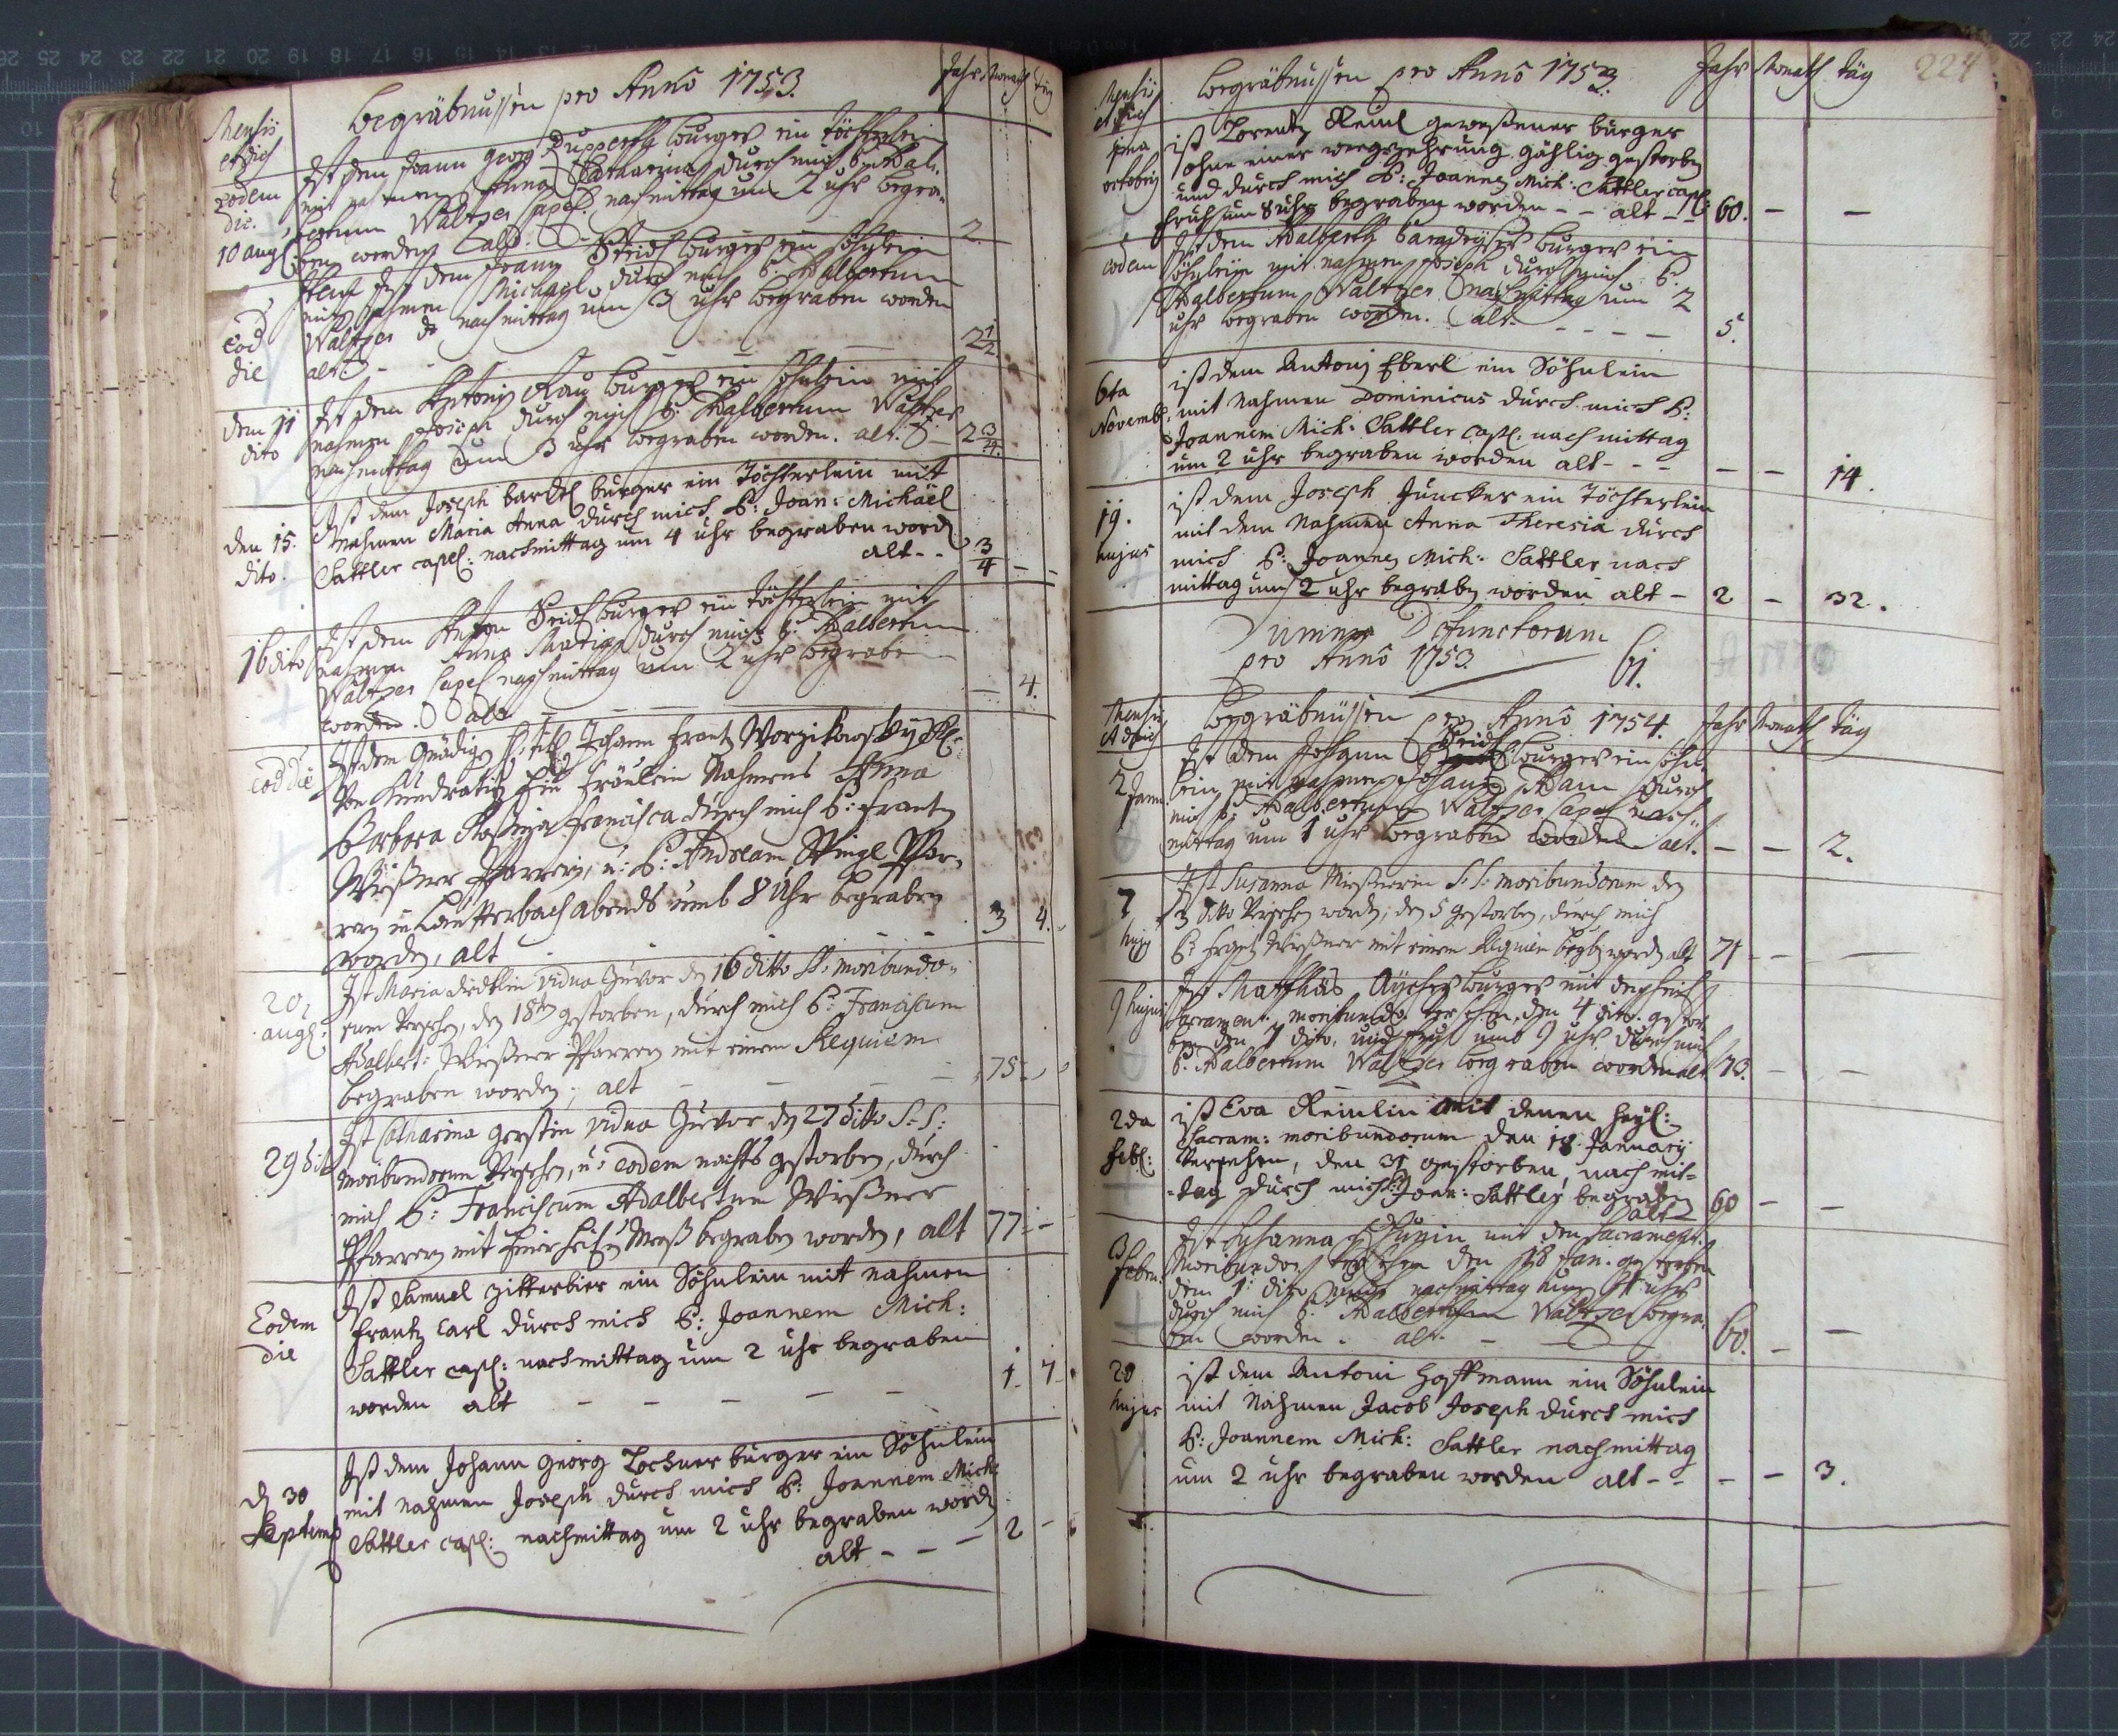 Mensis et Dies
begräbnussen pro Anno 1753.
Jahr Monath täg
eodem die. 10 aug:
Ist dem Joann Georg Rupperth burger ein töchterlein
mit nahmen Anna Catharina durch mich P: Adal-
bertum Waltzer Capel: nachmittag um 2 uhr begra-
ben worden alt. 2.
eod die
Item Ist dem Joann burger ein söhnlein
mit nahmen Michael durch mich P: Adalbertum
Waltzer nachmittag um 3 uhr begraben worden
alt. - - - 2 1/2.
dem 11 dito
Ist dem Antoni Rau burger ein söhnlein mit
nahmen Joseph durch mich P: Adalbertum Waltzer
nachmittag um 3 uhr begraben worden. alt. 2 3/4.
den 15. dito.
Ist dem Joseph bartel burger ein Töchterlein mit
Nahmen Maria Anna durch mich P: Joan: Michäel
Sattler capel: nachmittag um 4 uhr begraben word
alt - - 3/4 - -
16 dito
Ist dem Anton burger ein töchterlein mit
nahmen Anna Maria durch mich P: Adalbertum
Waltzer Capel nachmittag um 2 uhr begrabe
worden. alt - - - 4.
eod die
Ist dem Gnädig H: Johann Frantz Worzikowsky
Von Kundratitz Ein Fräulein Nahmens Anna
Barbara Rosina Francisca durch mich P: Frantz
Wißner Pfarrern, u: P: Andream Pfar-
rern in Lautterbach Abends umb 8 Uhr begraben
worden, alt - - - 3 4.
20 aug:
Ist Maria vidua Zuvor den 16 ditto S: moribundo-
rum Versehen, den 18ten gestorben, durch mich P: Franciscum
Adalbert: Wißner Pfarrern mit einem Requiem
begraben worden; alt - - - - 75 -
29 dit
Ist Catharina Gerstin vidua Zuvor den 27 ditto S: S:
moribundorum Versehen, u: eodem nachts gestorben, durch
mich P: Franciscum Adalbertum Wißner
Pfarrern mit Einer heil: Meß begraben worden, alt 77 -
Eodem die
Ist Samuel Zitterbier ein Söhnlein mit nahmen
Frantz Carl durch mich P: Joannem Mich:
Sattler capl: nachmittag um 2 uhr begraben
worden alt - - - - - 1 7.
d 30 Septemb
Ist dem Johann Georg Lochner bürger ein Söhnlein
mit Nahmen Joseph durch mich P: Joannem Mich:
Sattler capl: nachmittag um 2 uhr begraben word
alt - - - 2 -
224
Mensis et Dies
begräbnussen pro Anno 1753.
Jahr Monath täg
1ma octobris
ist Lorentz Reinl gewesener burger
ohne einer wegzehrung gählig gestorben
und durch mich P: Joannem Mich: Sattler capl:
Fruh um 8 uhr begraben worden - - alt - 60. - -
eodem
Ist dem Adalberth burger ein
söhnlein mit nahmen Joseph durch mich P.
Adalbertum Waltzer nachmittag um 2
uhr begraben worden. alt. - - - - 5.
6ta Novemb:
ist dem Antoni Eberl ein Söhnlein
mit Nahmen Dominicus durch mich P:
Joannem Mich: Sattler Capl. nachmittag
um 2 uhr begraben worden alt - - - - - 14.
19. hujus
ist dem Joseph Juncker ein Töchterlein
mit dem Nahmen Anna Theresia durch
mich P: Joannem Mich: Sattler nach
mittag um 2 uhr begraben worden alt - 2 - 32.
Summa Defunctorum
pro Anno 1753. 61.
Mensis et Dies
begräbnüssen pro Anno 1754.
Jahr Monath täg
2 Janu:
Ist dem Johann burger ein söhn-
lein mit nahmen Johann Adam durch
mich P: Adalbertum Waltzer Capel nach-
mittag um 1 uhr begraben worden alt. - - 2.
7 hujus
Ist Susanna S: S: moribundorum den
3 ditto Versehen worden, den 5 gestorben, durch mich
P: Frantz Wißner mit einem Requiem begr: worden alt 71 - -
9 hujus
Ist Matthäs burger mit den heil:
Sacrament: moribundo: versehen, den 4 dito. gestor-
ben den 7 dito, und fruh umb 9 uhr durch mich
P: Adalbertum Waltzer begraben worden alt 73. - -
2da feb:
ist Eva Reinlin mit denen heyl:
Sacram: moribundorum den 18. January
Versehen, den 31 gestorben, nach mit-
-tag durch mich P: Joan: Sattler begraben
alt 60 - -
3 Feber:
Ist Susanna mit den Sacrament.
Moribundor versehen den 18 Jan. gestorben
den 1. dito nachmittag um 4 uhr
durch mich P: Adalbertum Waltzer begra-
ben worden. alt. - - 60. - -
20 hujus
ist dem Antoni Hoffmann ein Söhnlein
mit Nahmen Jacob Joseph durch mich
P: Joannem Mich: Sattler nachmittag
um 2 uhr begraben worden alt - - - - 3.